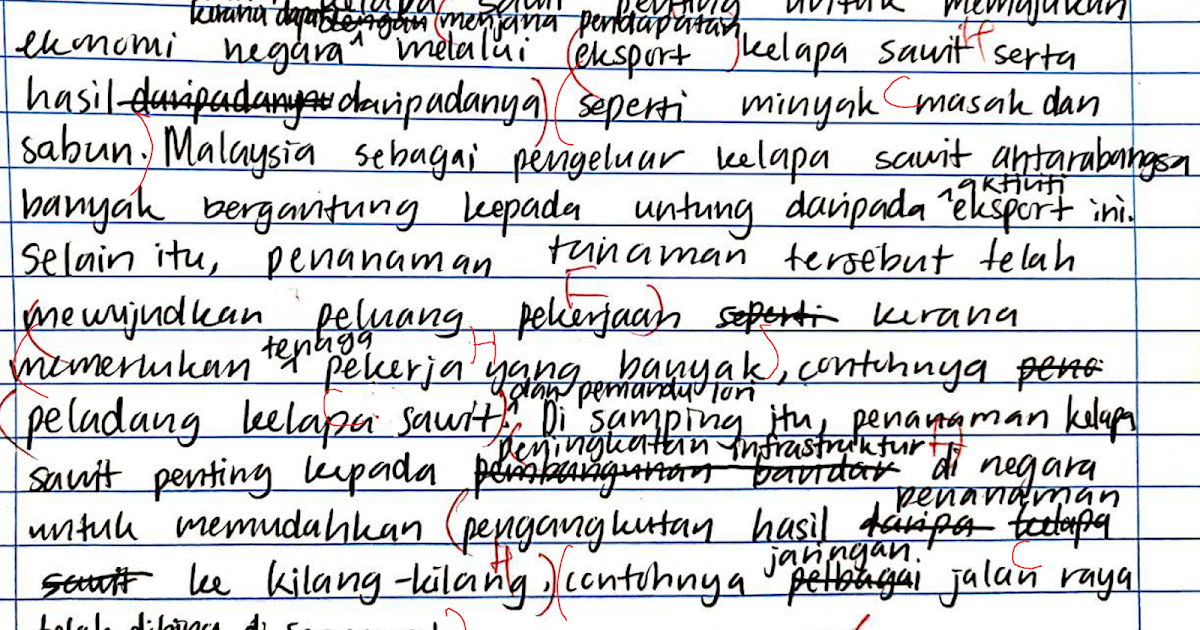 kelapa sawit penting untuk memajukan
kerana dapat dengan menjana pendapatan
ekonomi negara ^ melalui (eksport) kelapa sawit serta
hasil daripadanya daripadanya) (seperti minyak masak dan
sabun.) Malaysia sebagai pengeluar kelapa sawit antarabangsa
aktiviti
banyak bergantung kepada untung daripada ^ eksport ini.
Selain itu, penanaman tanaman tersebut telah
E
(mewujudkan peluang pekerjaan) seperti kerana
tenaga H
(memerlukan ^ pekerja yang banyak), contohnya pena
dan pemandu lori
(peladang kelapa sawit)^. Di samping itu, penanaman kelapa
peningkatan infrastruktur H
sawit penting kepada pembangunan bandar di negara
penanaman
untuk memudahkan (pengangkutan hasil daripa kelapa
H jaringan C
sawit ke kilang-kilang,) (contohnya pelbagai jalan raya
telah dibina di